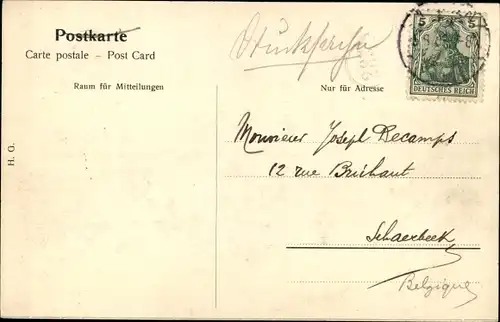 Postkarte
Carte postale – Post Card
Drucksache
5 5
DEUTSCHES REICH
Raum für Mitteilungen
Nur für Adresse
Monsieur Joseph Decamps
12 rue
Schaerbeek
Belgique
H. G.